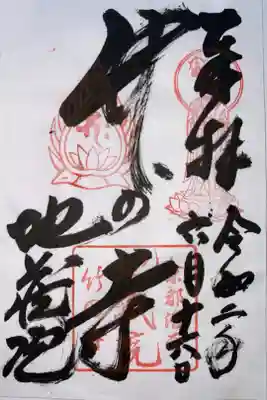 奉拝
令和二年
六月十六日
竹の寺
地蔵院